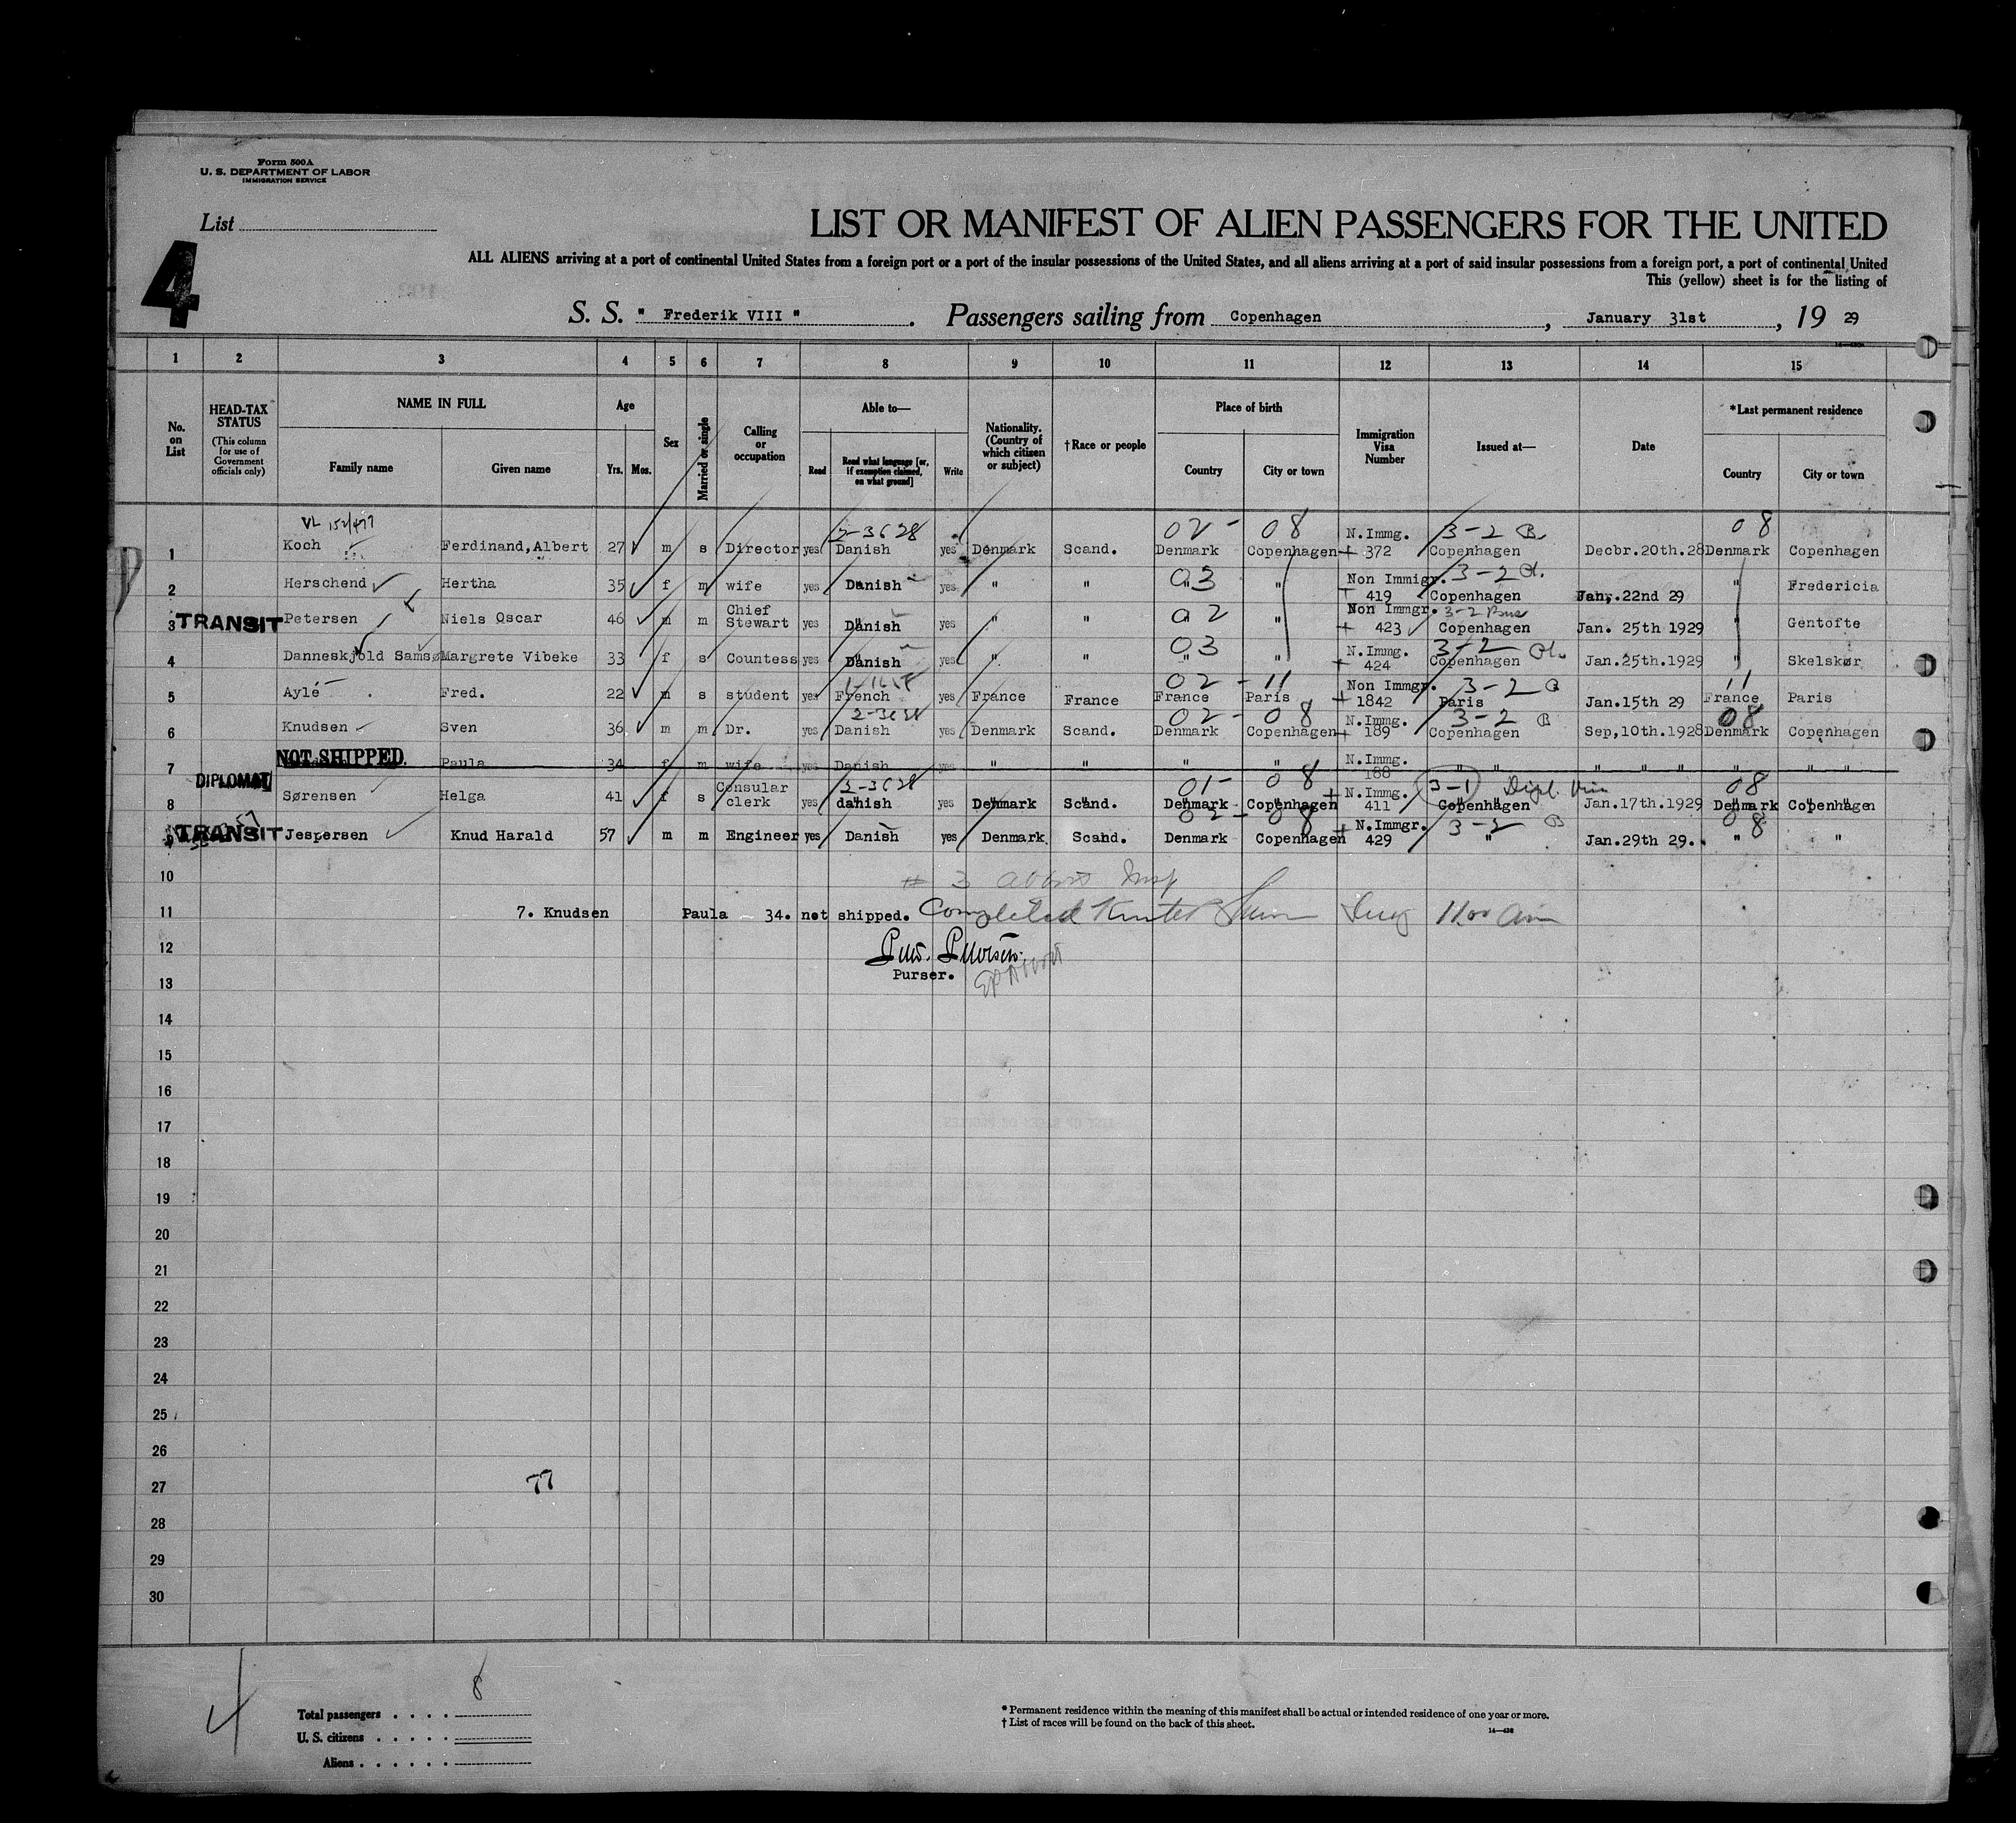 Form 500A
U. S. DEPARTMENT OF LABOR
IMMIGRATION SERVICE
List
4
LIST OR MANIFEST OF ALIEN PASSENGERS FOR THE UNITED
ALL ALIENS arriving at a port of continental United States from a foreign port or a port of the insular possessions of the United States, and all aliens arriving at a port of said insular possessions from a foreign port, a port of continental United
This (yellow) sheet is for the listing of
S. S. " Frederik VIII " . Passengers sailing from Copenhagen , January 31st , 19 29
1 2 3 4 5 6 7 8 9 10 11 12 13 14 15
No. on List
HEAD-TAX STATUS (This column for use of Government officials only)
NAME IN FULL Family name Given name
Age Yrs. Mos.
Sex
Married or single
Calling or occupation
Able to— Read Read what language [or, if exemption claimed, on what ground] Write
Nationality. (Country of which citizen or subject)
†Race or people
Place of birth Country City or town
Immigration Visa Number
Issued at—
Date
*Last permanent residence Country City or town
VL 152/477 2-3628 02- 08 3-2 B. 08
1 Koch Ferdinand,Albert 27 m s Director yes Danish yes Denmark Scand. Denmark Copenhagen N.Immg. 372 Copenhagen Decbr.20th.28 Denmark Copenhagen
03 3-2
2 Herschend Hertha 35 f m wife yes Danish yes " " " " Non Immigr. 419 Copenhagen Jan. 22nd 29 " Fredericia
02 3-2
3 TRANSIT Petersen Niels Oscar 46 m m Chief Stewart yes Danish yes " " " Non Immgr. 423 Copenhagen Jan. 25th 1929 Gentofte
03 3-2
4 Danneskjold Samsø Margrete Vibeke 33 f s Countess yes Danish yes " " " " N.Immg. 424 Copenhagen Jan.25th.1929 " Skelskør
02 - 11 3-2 11
5 Aylé Fred. 22 m s student yes French yes France France France Paris Non Immgr. 1842 Paris Jan.15th 29 France Paris
02- 08 3-2 B 08
6 Knudsen Sven 36 m m Dr. yes Danish yes Denmark Scand. Denmark Copenhagen N.Immg. 189 Copenhagen Sep,10th.1928 Denmark Copenhagen
NOT SHIPPED.
7 Paula 34 f m wife yes Danish yes " " " " N.Immg. 188 " " " " " " "
DIPLOMAT 2-3628 01- 08 3-1 Dipl. Visa 08
8 Sørensen Helga 41 f s Consular clerk yes danish yes Denmark Scand. Denmark Copenhagen N.Immg. 411 Copenhagen Jan.17th.1929 Denmark Copenhagen
02- 08 3-2 B 08
9 TRANSIT Jespersen Knud Harald 57 m m Engineer yes Danish yes Denmark Scand. Denmark Copenhagen N.Immgr. 429 " Jan.29th 29. " "
10 # 3
11 7. Knudsen Paula 34. not shipped. Completed 11.00 am
12
Purser.
13
14
15
16
17
18
19
20
21
22
23
24
25
26
27 77
28
29
30
4
8
Total passengers . . . .
U. S. citizens . . . . .
Aliens . . . . . .
* Permanent residence within the meaning of this manifest shall be actual or intended residence of one year or more.
† List of races will be found on the back of this sheet.
14—438